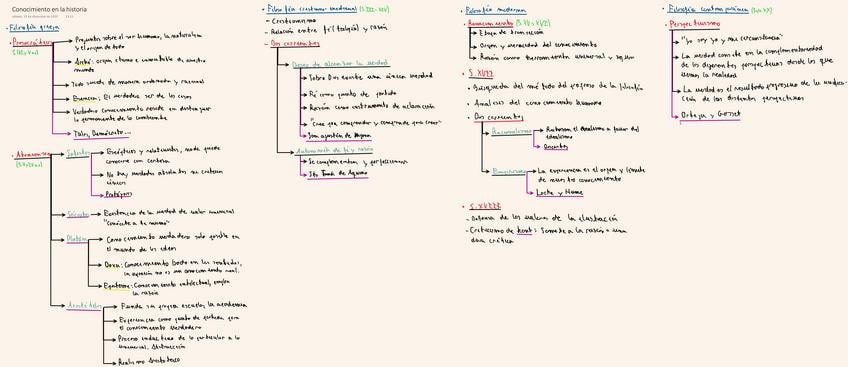 Conocimiento en la historia
Filosofía griega
Presocráticos
Preguntas sobre el ser humano, la naturaleza
y el origen de todo
Arché: origen eterno e inmutable de nuestro
mundo
Todo sucede de manera ordenada y racional
Esencia: El verdadero ser de las cosas
Verdadero conocimiento reside en distinguir
lo permanente de lo cambiante
Tales, Demócrito...
Atenienses
Sofistas
Escépticos y relativistas, nadie puede
conocer con certeza
No hay verdades absolutas
Protágoras
Sócrates
Existencia de la verdad de valor universal
"Conócete a ti mismo"
Platón
Conocimiento verdadero solo posible en
el mundo de las ideas
Doxa: Conocimiento basado en los sentidos,
la opinión no es un conocimiento real.
Episteme: Conocimiento intelectual, emplea
la razón
Aristóteles
Funda su propia escuela, la academia
Experiencia como punto de partida para
el conocimiento verdadero
Proceso inductivo de lo particular a lo
universal. Abstracción
Realismo Aristotélico
Filosofía cristiano-medieval
- Cristianismo
- Relación entre fe (teología) y razón
- Dos corrientes
Deseo de alcanzar la verdad
Sobre Dios existe una única verdad
Fé como punto de partida
Razón como instrumento de aclaración
"Cree para comprender y comprende para creer"
San agustín de Hipona
Autonomía de fe y razón
Se complementan y perfeccionan
Sto Tomás de Aquino
Filosofía moderna
Renacimiento
Etapa de transición
Origen y veracidad del conocimiento
Razón como herramienta universal y segura
S. XVII
Búsqueda del método del progreso de la filosofía
Análisis del conocimiento humano
Dos corrientes
Racionalismo
Descartes
Empirismo
La experiencia es el origen y límite
de nuestro conocimiento
Locke y Hume
S. XVIII
- Defensa de los valores de la ilustración
- Criticismo de Kant: Somete a la razón a una
dura crítica
Filosofía contemporánea
Perspectivismo
"Yo soy yo y mi circunstancia"
La verdad consiste en la complementariedad
de las diferentes perspectivas desde las que
vemos la realidad
La verdad es el resultado progresivo de la unifica-
ción de las distintas perspectivas
Ortega y Gasset